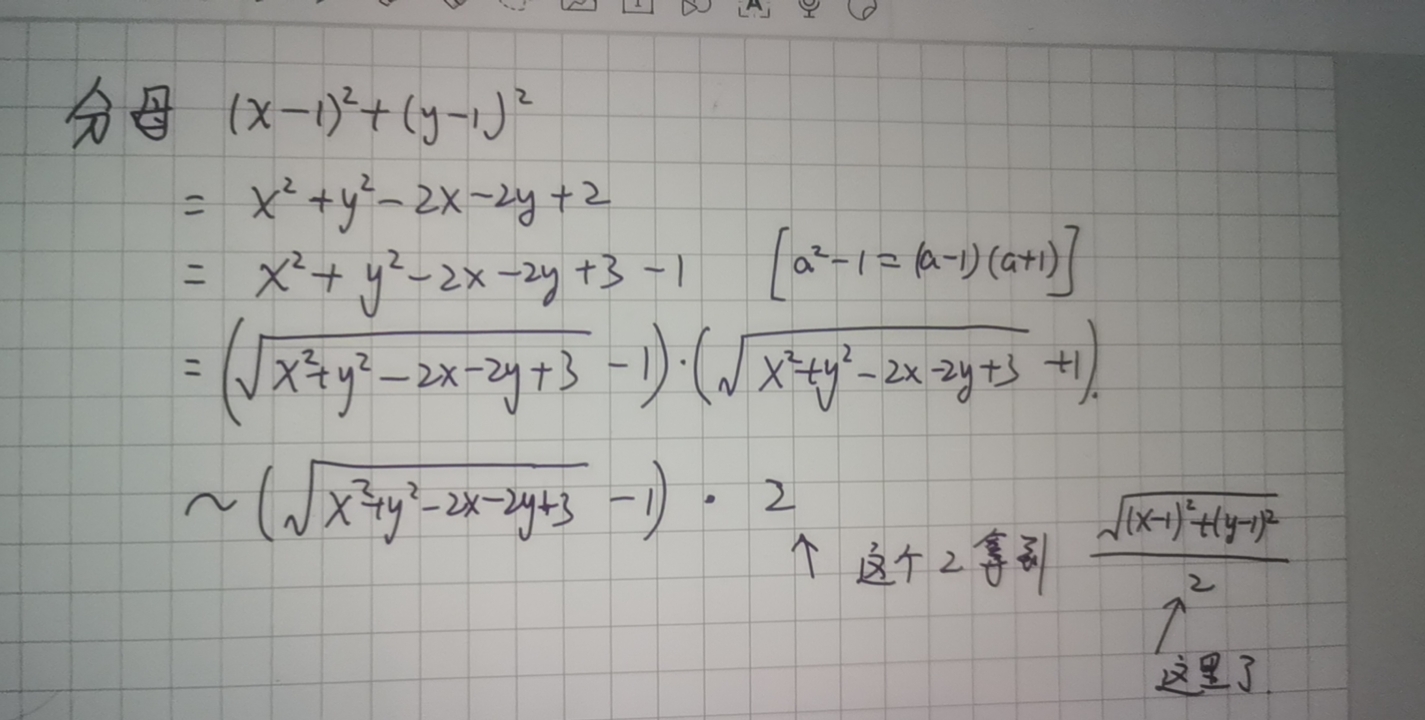 分母 (x-1)²+(y-1)²
= x²+y²-2x-2y+2
= x²+y²-2x-2y+3-1 [a²-1=(a-1)(a+1)]
= (√(x²+y²-2x-2y+3) -1)·(√(x²+y²-2x-2y+3) +1).
~ (√(x²+y²-2x-2y+3) -1) · 2
↑ 这个2拿到 √((x-1)²+(y-1)²) / 2
↑ 这里了.